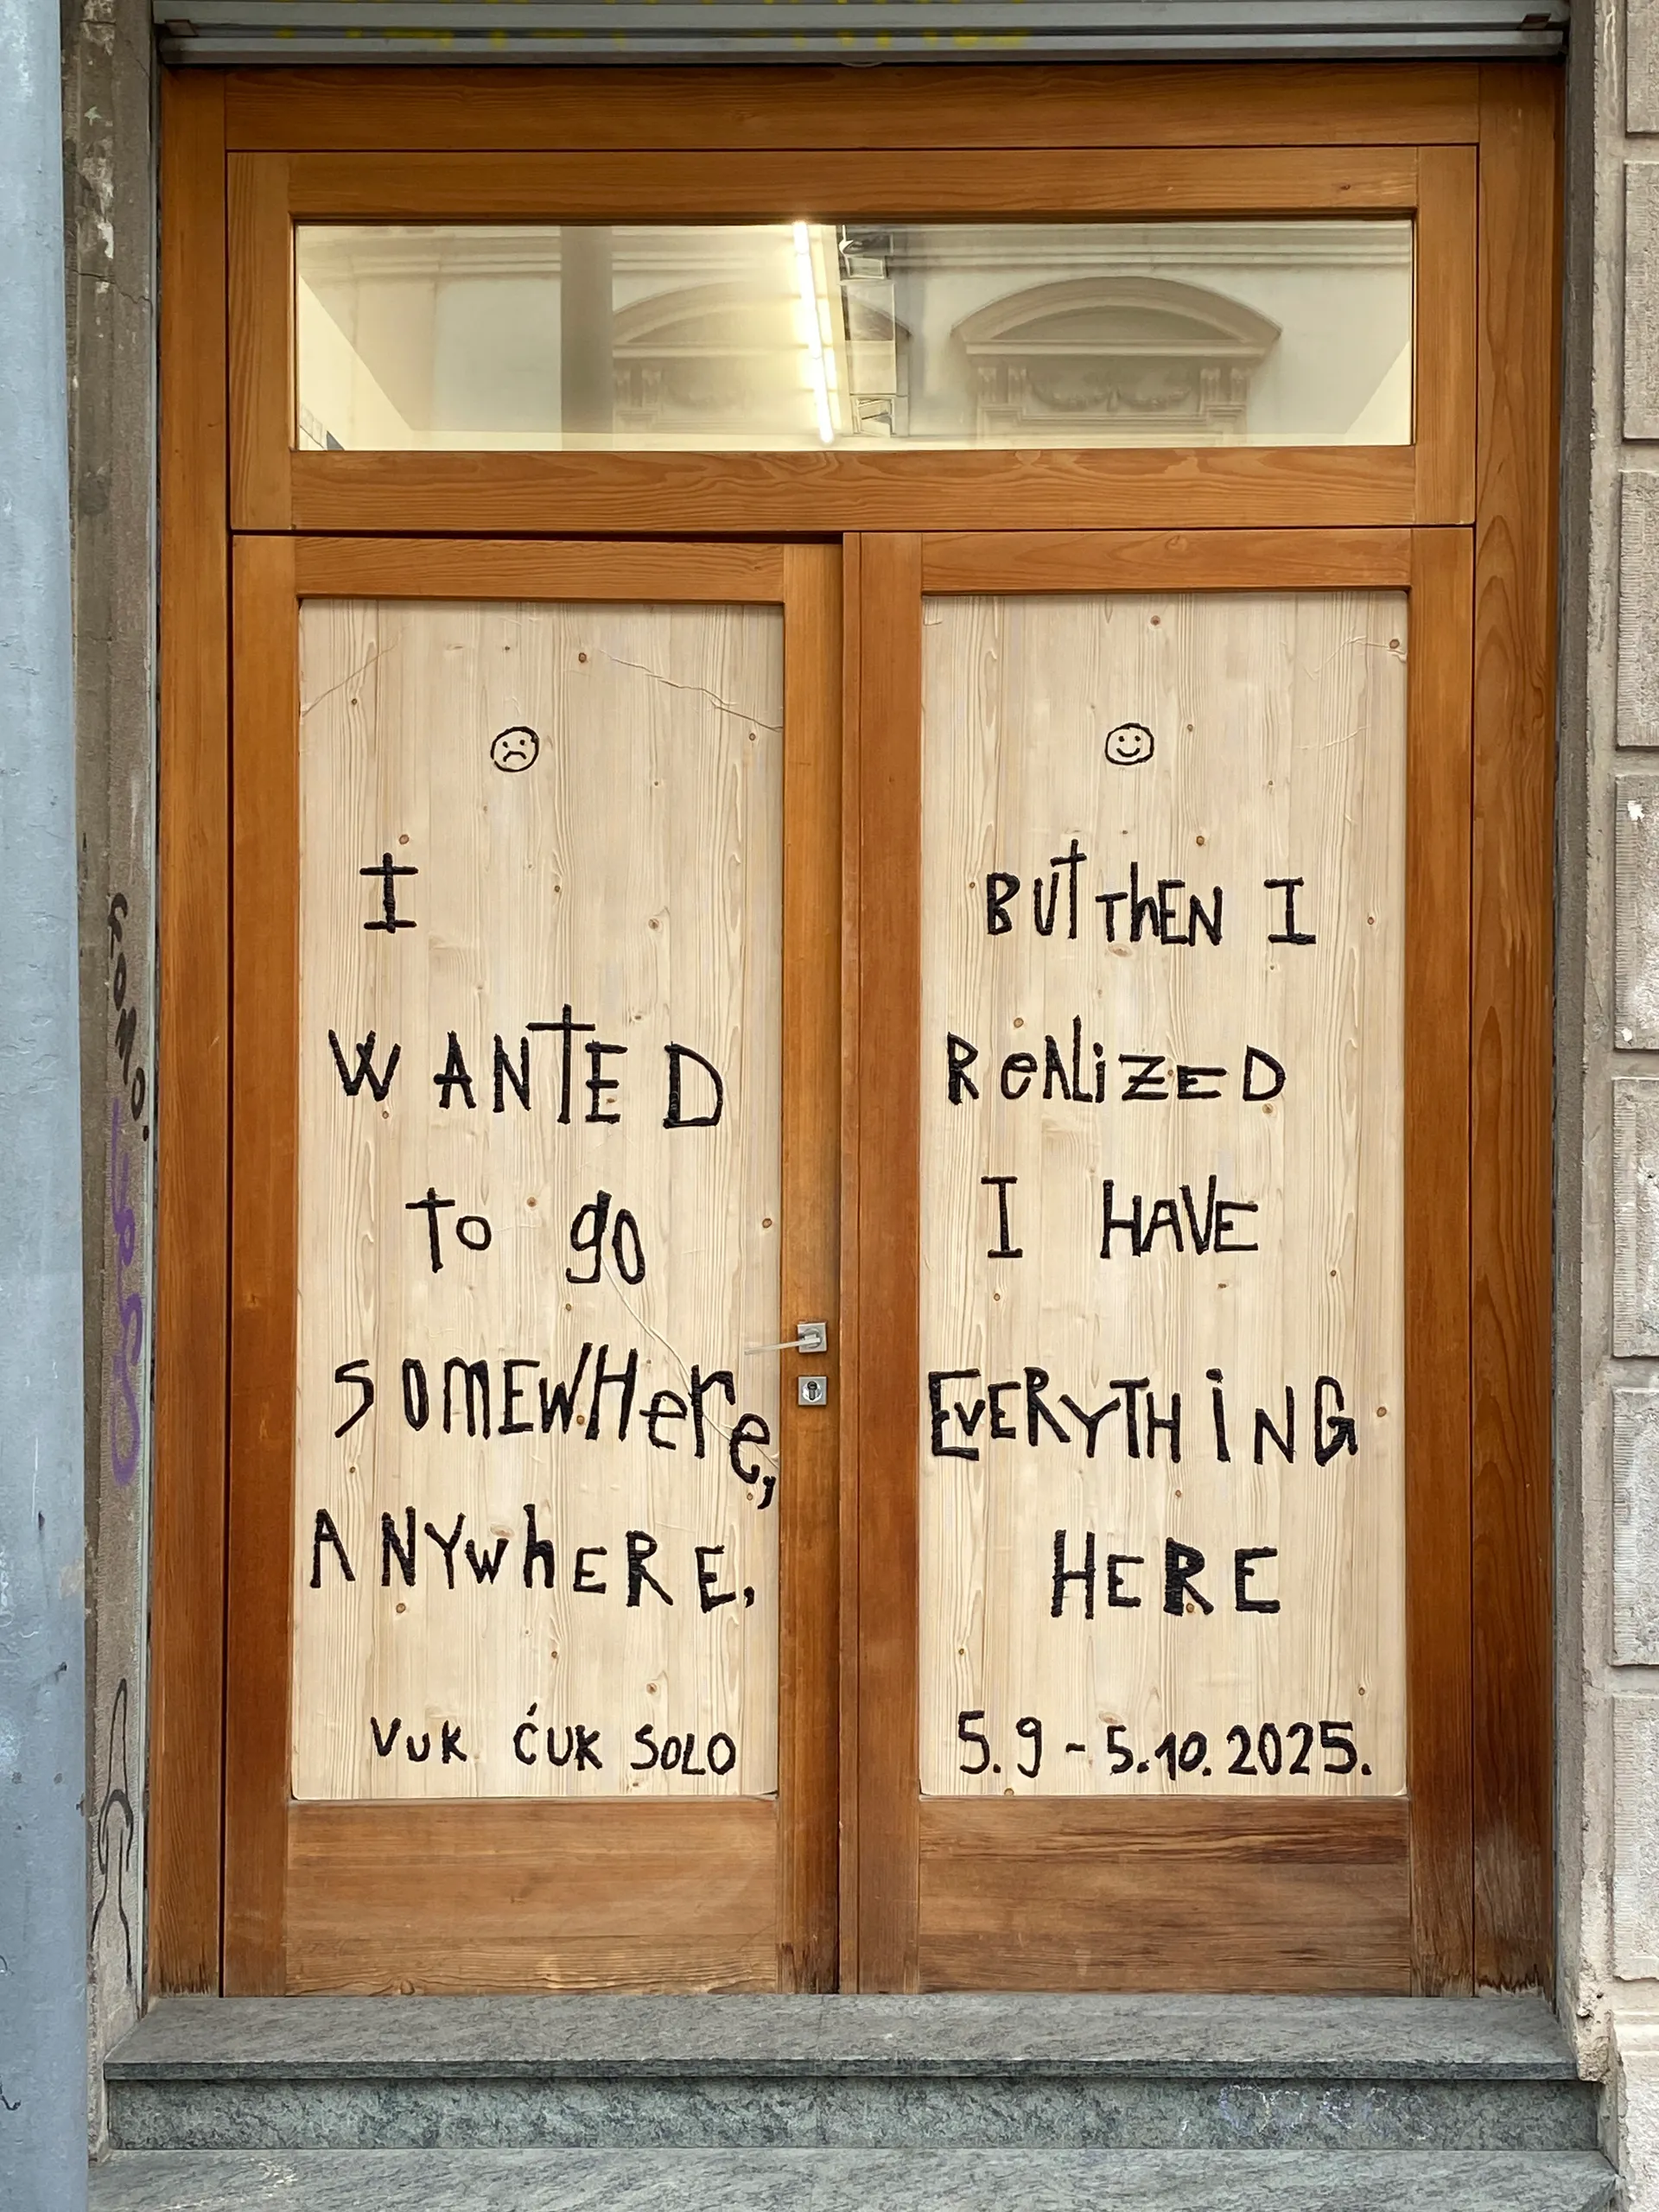 I
WANTED
to go
SOMEWHere,
ANYwhERE,
VUK ĆUK SOLO
BUT ThEN I
ReALiZED
I HAVE
EVERYTHiNG
HERE
5.9 - 5.10.2025.